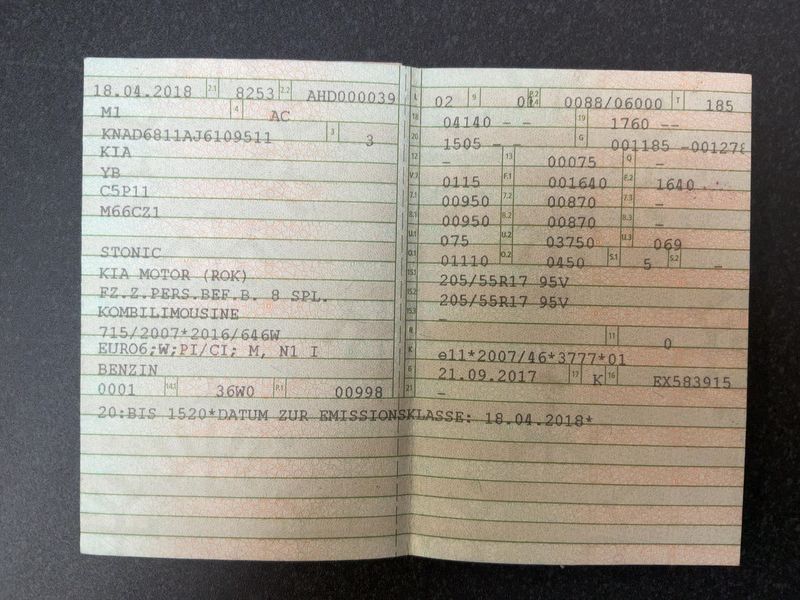 18.04.2018 2.1 8253 2.2 AHD000039
M1 4 AC
KNAD6811AJ6109511 3 3
KIA
YB
C5P11
M66CZ1
STONIC
KIA MOTOR (ROK)
FZ.Z.PERS.BEF.B. 8 SPL.
KOMBILIMOUSINE
715/2007*2016/646W
EURO6;W;PI/CI; M, N1 I
BENZIN
0001 14.1 36W0 P.1 00998
20:BIS 1520*DATUM ZUR EMISSIONSKLASSE: 18.04.2018*
L 02 9 01 P.2 P.4 0088/06000 T 185
18 04140 - - 19 1760 --
20 1505 - - G 001185 -00127
12 - 13 00075 Q -
V.7 0115 F.1 001640 F.2 1640
7.1 00950 7.2 00870 7.3 -
8.1 00950 8.2 00870 8.3 -
U.1 075 U.2 03750 U.3 069
O.1 01110 O.2 0450 S.1 5 S.2 -
15.1 205/55R17 95V
15.2 205/55R17 95V
15.3 -
R 11 0
K e11*2007/46*3777*01
6 21.09.2017 17 K 16 EX583915
21 -